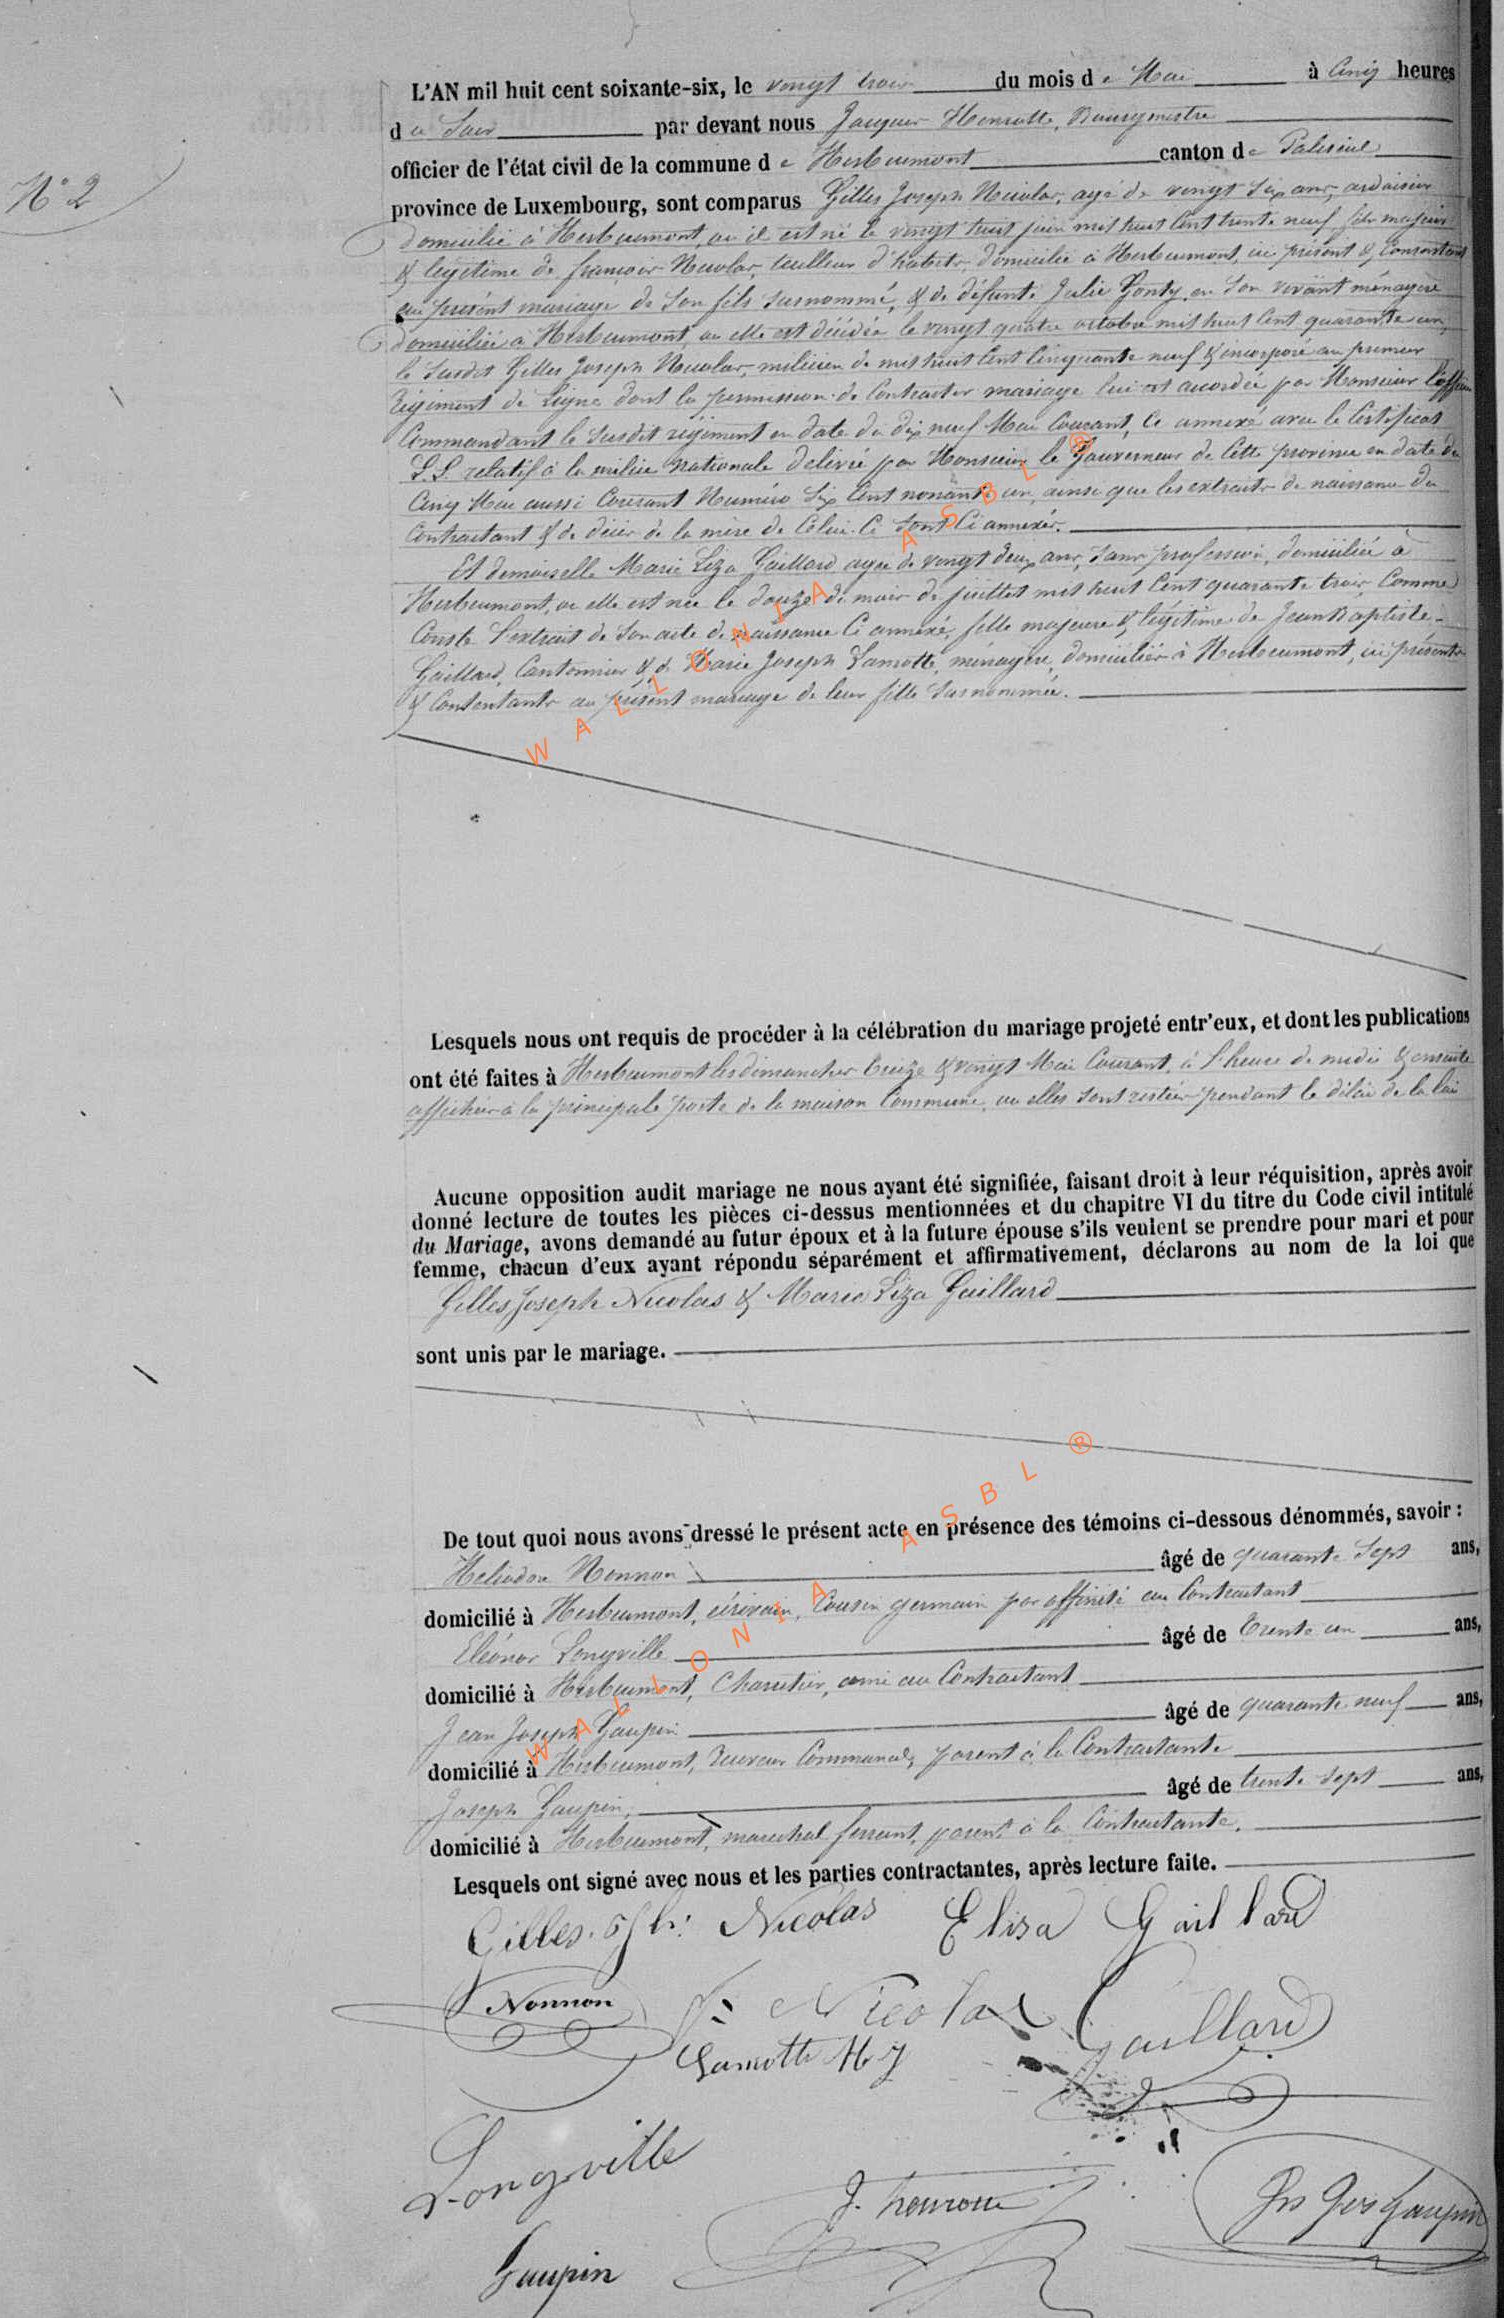 N° 2
L'AN mil huit cent soixante-six, le vingt trois du mois de Mai à Cinq heures
du Soir par devant nous Jacques Henrotte, Bourgmestre
officier de l'état civil de la commune de Herbeumont canton de Paliseul
province de Luxembourg, sont comparus Gilles Joseph Nicolas, agé de vingt six ans, ardoisier
domicilié à Herbeumont, ou il est né le vingt huit juin mil huit Cent trente neuf, fils majeur
& légitime de françois Nicolas, tailleur d'habits, domicilié à Herbeumont, ici présent & Consentant
au présent mariage de Son fils susnommé, & de défunte Julie Gonty, en Son vivant ménagère
domiciliée à Herbeumont, ou elle est décédée le vingt quatre octobre mil huit Cent quarante un,
le Susdit Gilles Joseph Nicolas, milicien de mil huit Cent Cinquante neuf & incorporé au premier
Régiment de Ligne dont la permission de Contracter mariage lui est accordée par Monsieur l'officier
Commandant le Susdit régiment en date du dix neuf Mai Courant, Ci annexé avec le Certificat
L.L. relatif à la milice Nationale délivré par Monsieur le Gouverneur de Cette province en date du
Cinq Mai aussi Courant Numéro Six Cent nonante un, ainsi que les extraits de naissance du
Contractant & de décès de la mère de Celui Ci Sont Ci annexés.
Et demoiselle Marie Liza Gaillard agée de vingt deux ans, Sans profession, domiciliée à
Herbeumont, ou elle est née le douze du mois de juillet mil huit Cent quarante trois, Comme
Conste l'extrait de Son acte de naissance Ci annexé, fille majeure & légitime de Jean Baptiste
Gaillard, Cantonnier & de Marie Joseph Lamotte, ménagère, domiciliés à Herbeumont, ici présents
& Consentants au présent mariage de leur fille Susnommée.
Lesquels nous ont requis de procéder à la célébration du mariage projeté entr'eux, et dont les publications
ont été faites à Herbeumont les dimanches treize & vingt Mai Courant, à l'heure de midi & ensuite
affichées à la principale porte de la maison Commune, ou elles sont restées pendant le délai de la loi
Aucune opposition audit mariage ne nous ayant été signifiée, faisant droit à leur réquisition, après avoir
donné lecture de toutes les pièces ci-dessus mentionnées et du chapitre VI du titre du Code civil intitulé
du Mariage, avons demandé au futur époux et à la future épouse s'ils veulent se prendre pour mari et pour
femme, chacun d'eux ayant répondu séparément et affirmativement, déclarons au nom de la loi que
Gilles Joseph Nicolas & Marie Liza Gaillard
sont unis par le mariage.
De tout quoi nous avons dressé le présent acte en présence des témoins ci-dessous dénommés, savoir :
Héliodore Nonnon âgé de quarante Sept ans,
domicilié à Herbeumont, écrivain, Cousin germain par affinité au Contractant
Eléonor Longville âgé de Trente un ans,
domicilié à Herbeumont, Charretier, ami au Contractant
Jean Joseph Gaupin âgé de quarante neuf ans,
domicilié à Herbeumont, Receveur Communal, parent à la Contractante
Joseph Gaupin, âgé de trente sept ans,
domicilié à Herbeumont, maréchal ferrant, parent à la Contractante.
Lesquels ont signé avec nous et les parties contractantes, après lecture faite.
Gilles. Jph: Nicolas Elisa Gaillard
Nonnon Nicolas Gaillard
Lamotte M J
Longville
J. henrotte Jn Jos Gaupin
Gaupin
WALLONIA ASBL ®
WALLONIA ASBL ®